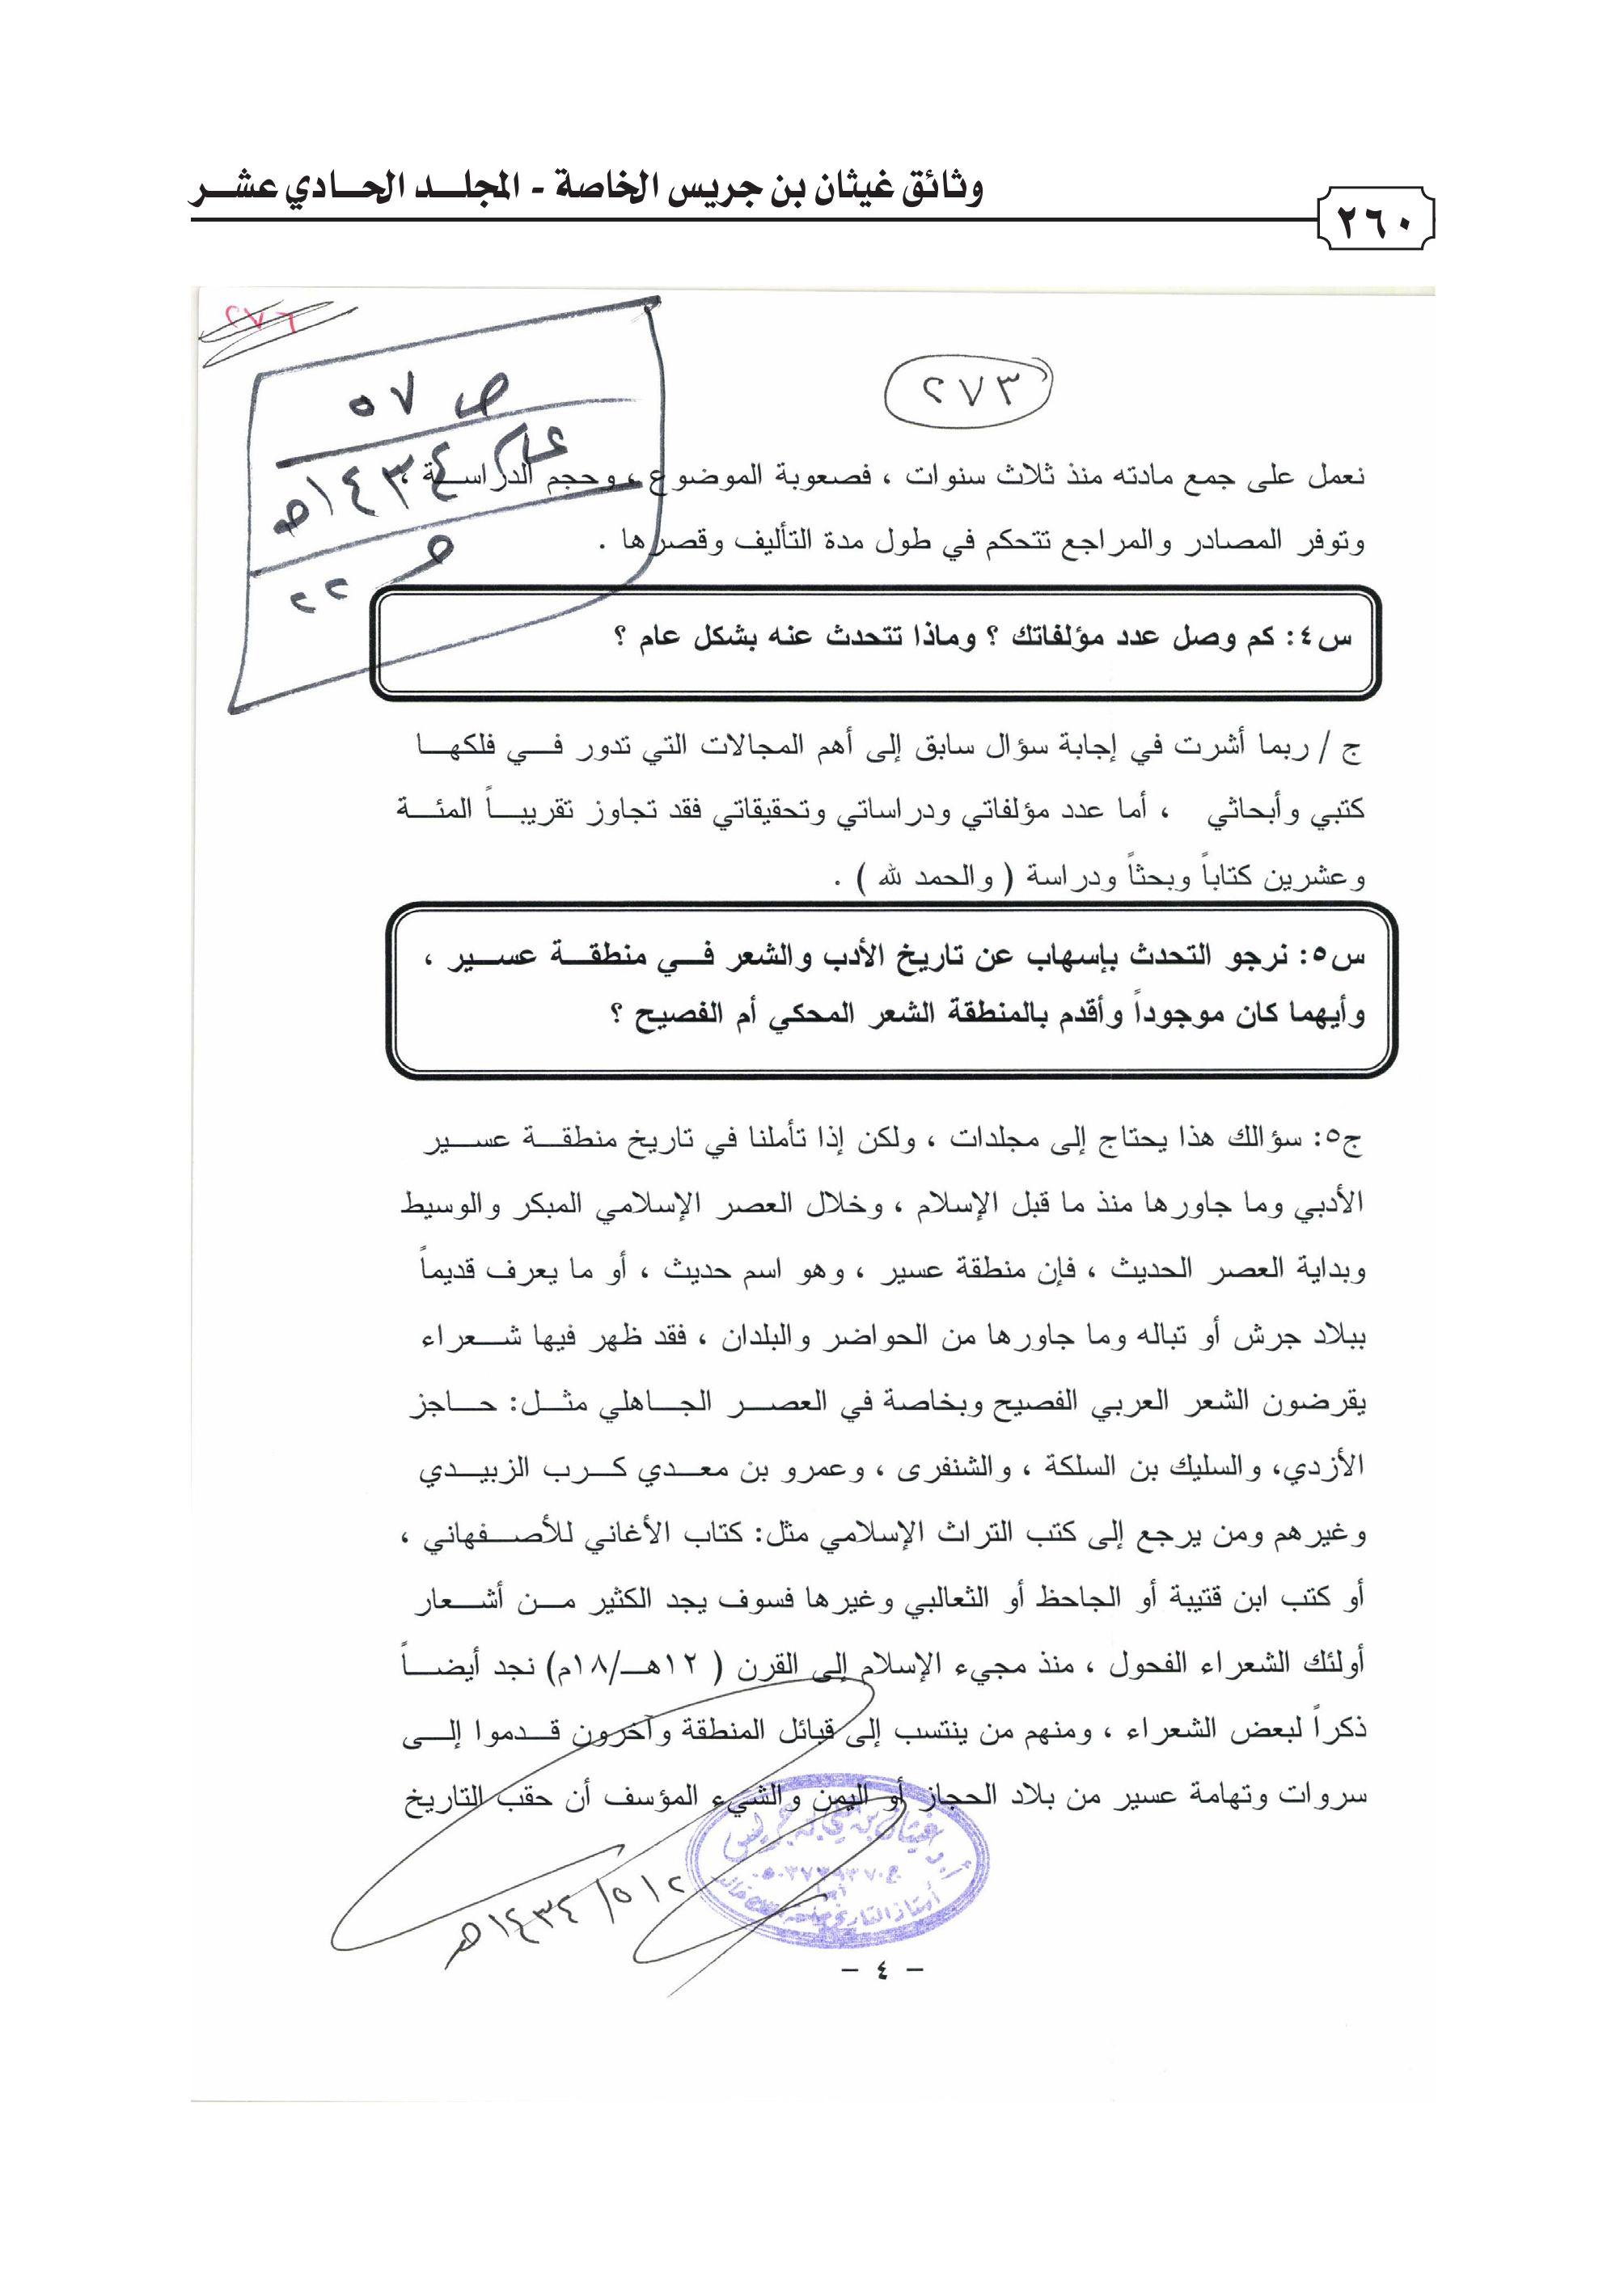 وثائق غيثان بن جريس الخاصة - المجلـد الحـادي عشـر
٢٦٠
٢٧٦
٢٧٣
ص ٥٧
عام ١٤٣٤هـ
ص ٢٢
نعمل على جمع مادته منذ ثلاث سنوات ، فصعوبة الموضوع ، وحجم الدراسـة ،
وتوفر المصادر والمراجع تتحكم في طول مدة التأليف وقصرها .
س٤: كم وصل عدد مؤلفاتك ؟ وماذا تتحدث عنه بشكل عام ؟
ج / ربما أشرت في إجابة سؤال سابق إلى أهم المجالات التي تدور فـي فلكهـا
كتبي وأبحاثي ، أما عدد مؤلفاتي ودراساتي وتحقيقاتي فقد تجاوز تقريبـاً المئـة
وعشرين كتاباً وبحثاً ودراسة ( والحمد لله ) .
س٥: نرجو التحدث بإسهاب عن تاريخ الأدب والشعر فـي منطقـة عسـير ،
وأيهما كان موجوداً وأقدم بالمنطقة الشعر المحكي أم الفصيح ؟
ج٥: سؤالك هذا يحتاج إلى مجلدات ، ولكن إذا تأملنا في تاريخ منطقـة عسـير
الأدبي وما جاورها منذ ما قبل الإسلام ، وخلال العصر الإسلامي المبكر والوسيط
وبداية العصر الحديث ، فإن منطقة عسير ، وهو اسم حديث ، أو ما يعرف قديماً
ببلاد جرش أو تباله وما جاورها من الحواضر والبلدان ، فقد ظهر فيها شـعراء
يقرضون الشعر العربي الفصيح وبخاصة في العصـر الجـاهلي مثـل: حـاجز
الأزدي، والسليك بن السلكة ، والشنفرى ، وعمرو بن معـدي كـرب الزبيـدي
وغيرهم ومن يرجع إلى كتب التراث الإسلامي مثل: كتاب الأغاني للأصـفهاني ،
أو كتب ابن قتيبة أو الجاحظ أو الثعالبي وغيرها فسوف يجد الكثير مـن أشـعار
أولئك الشعراء الفحول ، منذ مجيء الإسلام إلى القرن ( ١٢هـ/١٨م) نجد أيضـاً
ذكراً لبعض الشعراء ، ومنهم من ينتسب إلى قبائل المنطقة وآخرون قـدموا إلـى
سروات وتهامة عسير من بلاد الحجاز أو اليمن والشيء المؤسف أن حقب التاريخ
أ.د غيثان بن علي بن جريس
أبها
أستاذ التاريخ بجامعة الملك خالد
٢ / ٥ / ١٤٣٤هـ
- ٤ -